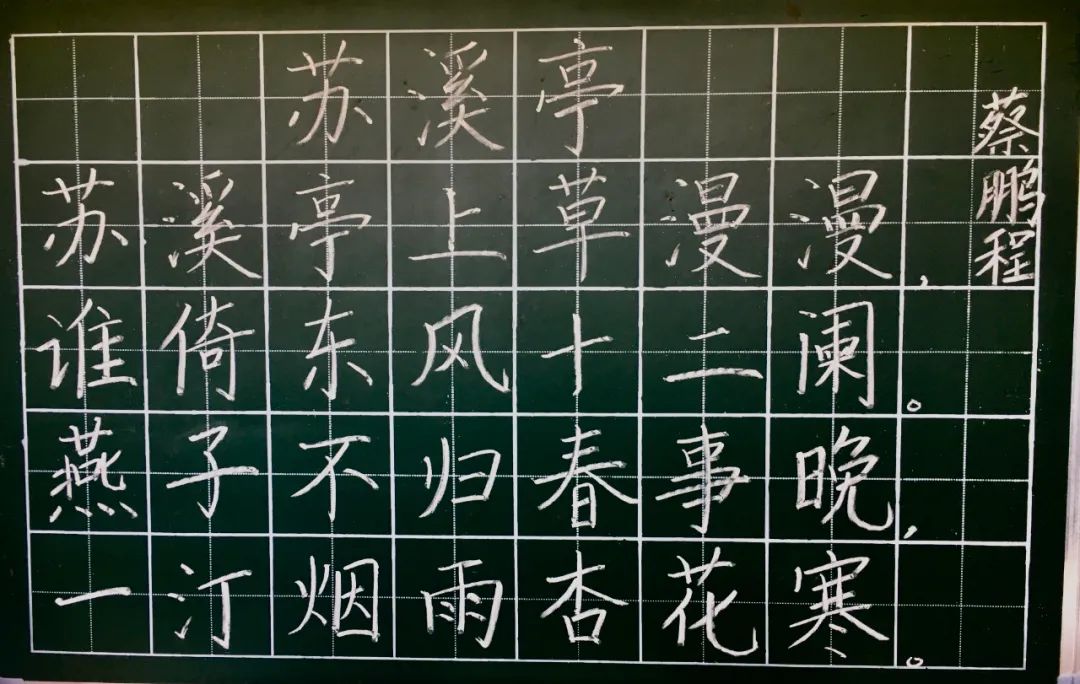 苏溪亭
苏溪亭上草漫漫，
谁倚东风十二阑。
燕子不归春事晚，
一汀烟雨杏花寒。
蔡鹏程